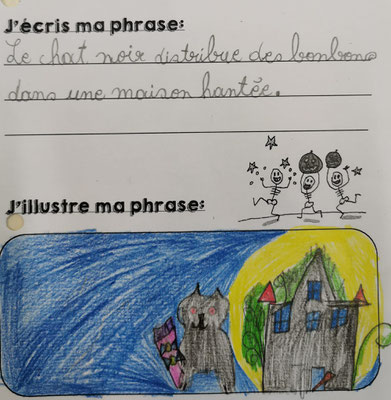 J'écris ma phrase:
Le chat noir distribue des bonbons
dans une maison hantée.
J'illustre ma phrase: